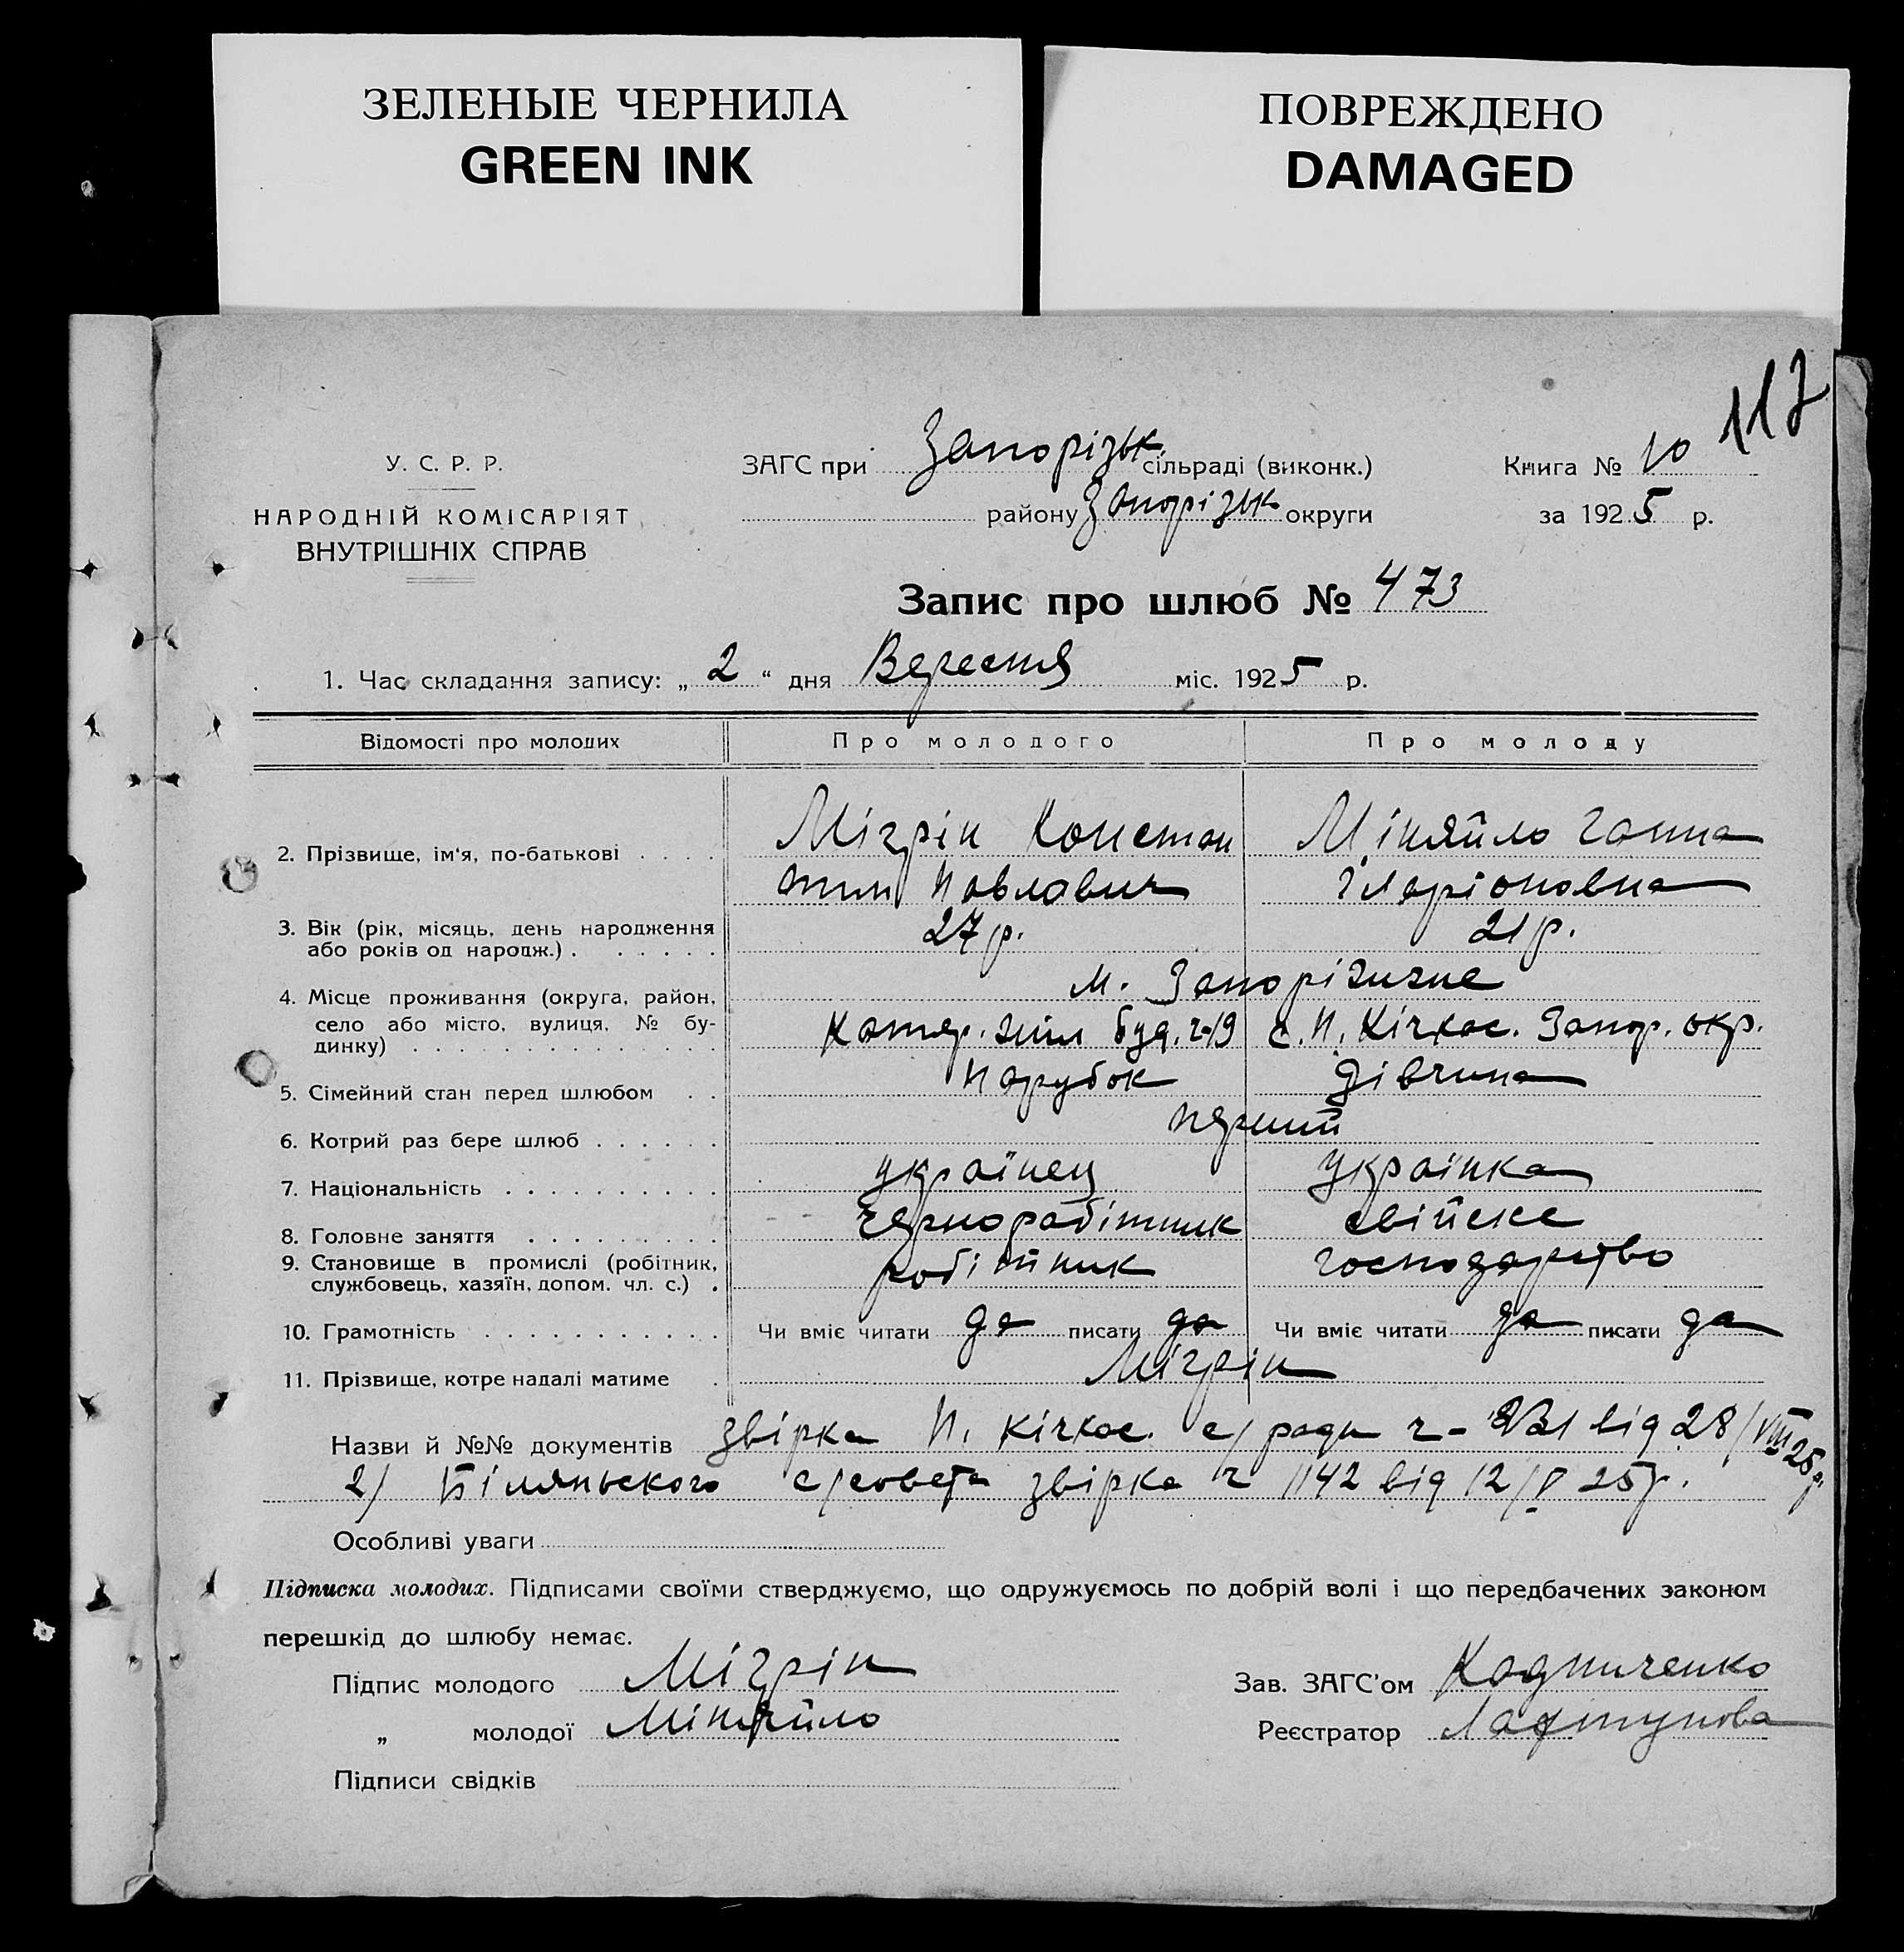 ЗЕЛЕНЫЕ ЧЕРНИЛА
GREEN INK
ПОВРЕЖДЕНО
DAMAGED
117
У. С. Р. Р.
НАРОДНІЙ КОМІСАРІЯТ
ВНУТРІШНІХ СПРАВ
ЗАГС при Запорізьк сільраді (виконк.)
району Запорізьк округи
Книга № 10
за 1925 р.
Запис про шлюб № 473
1. Час складання запису: „ 2 “ дня Вересня міс. 1925 р.
Відомості про молодих Про молодого Про молоду
2. Прізвище, ім'я, по-батькові Мігрін Констан Міняйло Ганна
тин Павлович Іларіоновна
3. Вік (рік, місяць, день народження
або років од народж.) 27 р. 21 р.
4. Місце проживання (округа, район, м. Запоріжжe
село або місто, вулиця, № бу-
динку) Катер. буд. ч-19 с. П. Кічкас. Запор. окр.
5. Сімейний стан перед шлюбом Парубок Дівчина
6. Котрий раз бере шлюб перший
7. Національність українец українка
8. Головне заняття чернорабітник свійске
9. Становище в промислі (робітник,
службовець, хазяїн, допом. чл. с.) робітник господарство
10. Грамотність Чи вміє читати да писати да Чи вміє читати да писати да
11. Прізвище, котре надалі матиме Мігрін
Назви й №№ документів звірка П. Кічкас. с/ради ч- від 28/VIII 25 р.
2/ Біляньского с/совета звірка ч 1142 від 12/V 25 р.
Особливі уваги
Підписка молодих. Підписами своїми стверджуємо, що одружуємось по добрій волі і що передбачених законом
перешкід до шлюбу немає.
Підпис молодого Мігрін
„ молодої Міняйло
Підписи свідків
Зав. ЗАГС'ом
Реєстратор